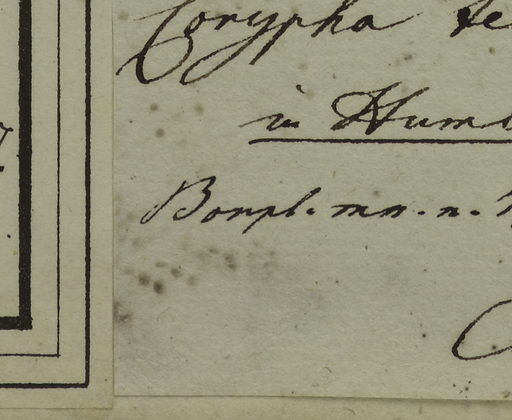 Corypha te
in Humb
Bonpl. mn. n.